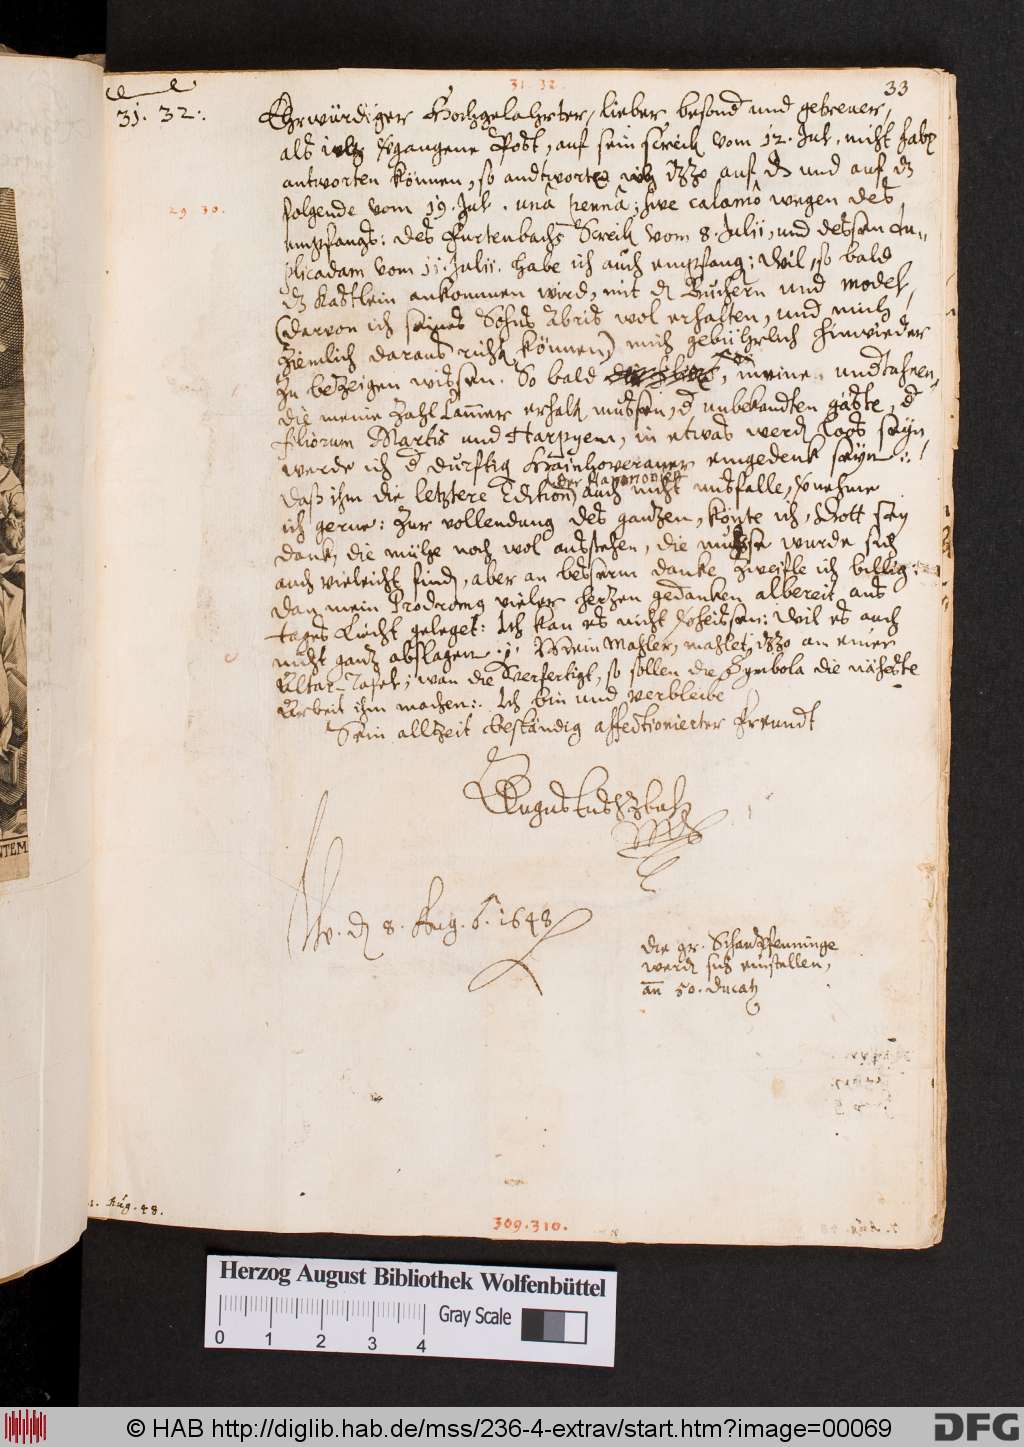 31. 32.
33
31. 32:.
Ehrwürdiger Hochgelahrter, lieber besond und getreuer,
als vergangene Post, auf sein schreiben vom 12. Jul. nicht habe
antworten können, so andtworte auf das und auf das
29 30.
folgende vom 19. Jul. unâ pennâ; sive calamô wegen des
empfangs: des Furtenbachs schreiben vom 8. Julii, und dessen du-
plicadam vom 11. Julii. habe ich auch empfang: Wil, so bald
das Kästlein ankommen wird, mit den Büchern und model,
(darvon ich seines Sohns Abris wol erhalten, und mich
Ziemlich daraus richten können) mich gebührlich hinwieder
Zu bezeigen wissen. So bald meine undtahnen,
die meine Zahl Cammer erhalten müssen, der unbekandten gäste, der
filiorum Martis und Harpyen, in etwas werden loos seyn,
werde ich der durftig Hainhoveraner eingedenk seyn:.
der Harmonien
daß ihm die letztere Edition, auch nicht misfalle, vernehme
ich gerne: Zur vollendung des gantzen, könte ich, Gott sey
dank, die mühe noch wol ausstehen, die musse wurde sich
auch vieleicht finden, aber an besserm danke zweifle ich billig:
dan mein Prodromus vieler hertzen gedanken albereit ans
tages Liecht geleget: Ich kan es nicht verheissen: Wil es auch
nicht gantz abslagen:. Mein Mahler, mahlet itzo an einer
Altar-Tafel; wan die verfertigt, so sollen die Symbola die näheste
Arbeit ihm machen:. Ich bin und verbleibe
Sein allzeit beständig affectionierter Freundt
Augustus HzBuL
W. den 8. Aug. 1648
die gr. Schaupfenninge
werden sich einstellen,
an 50. ducaten
Aug. 48.
309. 310.
Herzog August Bibliothek Wolfenbüttel
Gray Scale
0 1 2 3 4
© HAB http://diglib.hab.de/mss/236-4-extrav/start.htm?image=00069
DFG